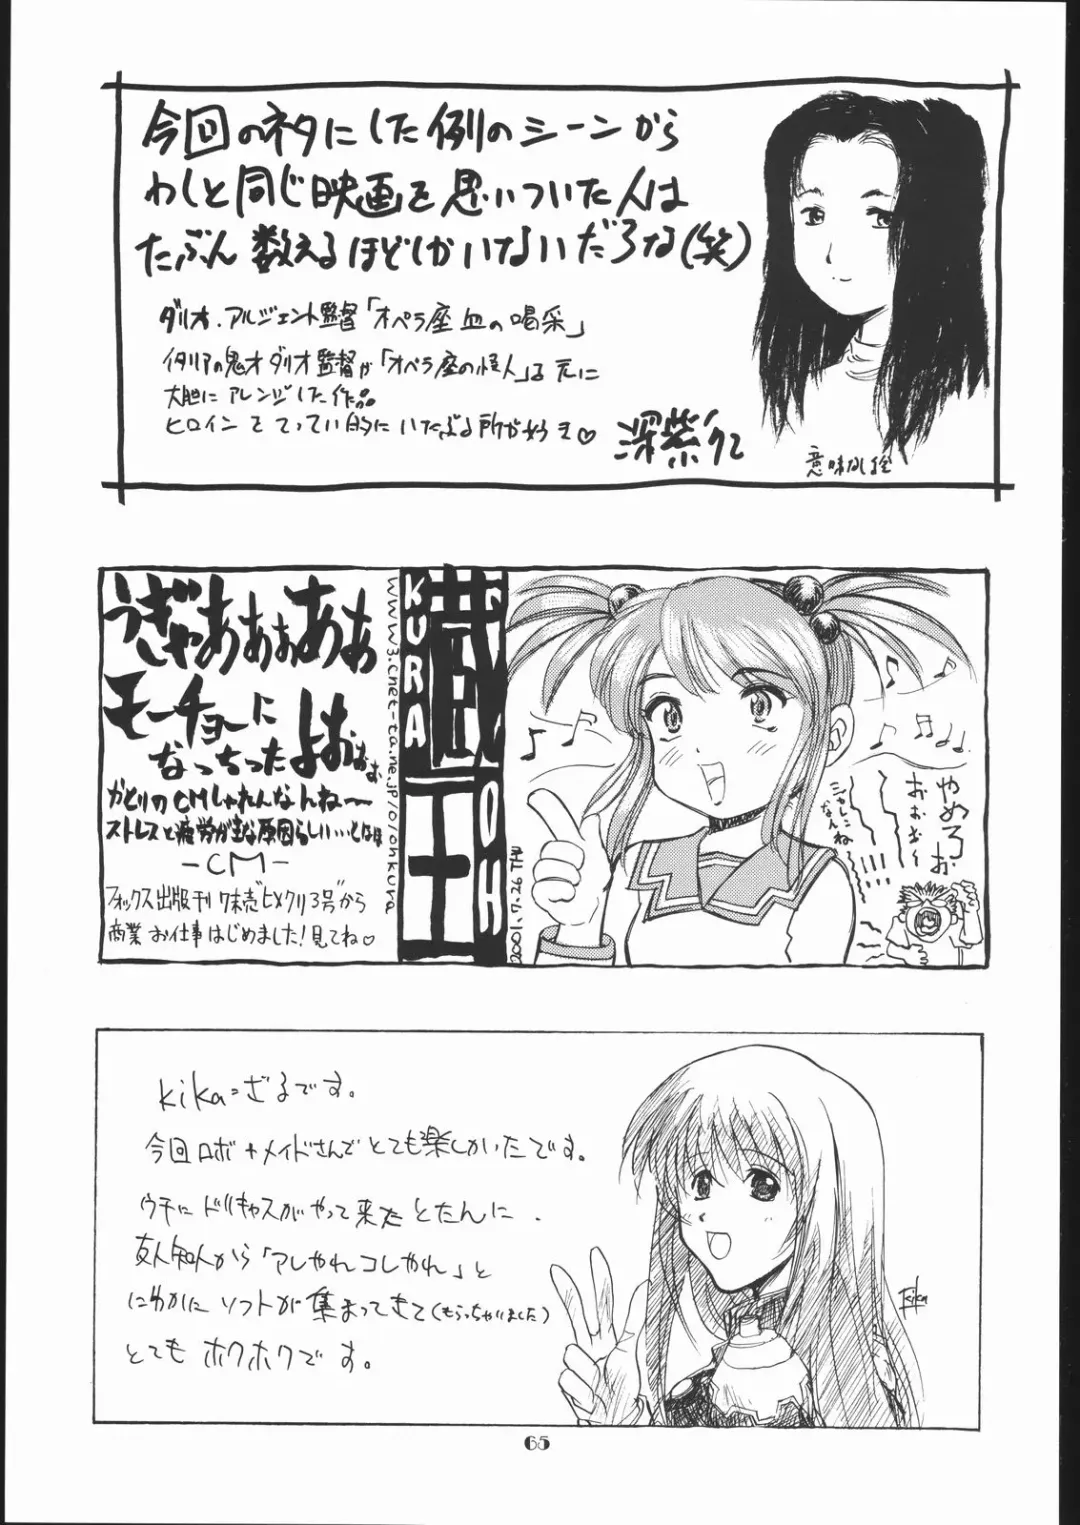 今回のネタにした例のシーンから
わしと同じ映画を思いついた人は
たぶん数えるほどしかいないだろな(笑)
ダリオ.アルジェント監督「オペラ座血の喝采」
イタリアの鬼才ダリオ監督が「オペラ座の怪人」を元に
大胆にアレンジした作品
ヒロインをてってい的にいたぶる所が好き♡
意味なし絵
うぎゃあぁぉあぁ
モーチョーに
なっちったよおぉぉ
かとりのCMしゃれんなんね〜
ストレスと疲労が主な原因らしい…
-CM-
フォックス出版刊7末売"ヒメクリ3号"から
商業お仕事はじめました!見てね♡
www3.cnet-ta.ne.jp/o/ohkura
KURA
蔵王
OH
2001.7.26 THU
やめろぉ
おぉぉ〜
シャレ
なんね
kika=ざるです。
今回ロボ+メイドさんでとても楽しかいたです。
ウチにドリキャスがやって来たとたんに、
友人知人から「アレやれコレやれ」と
にわかにソフトが集まってきて(もらっちゃいました)
とてもホクホクです。
65